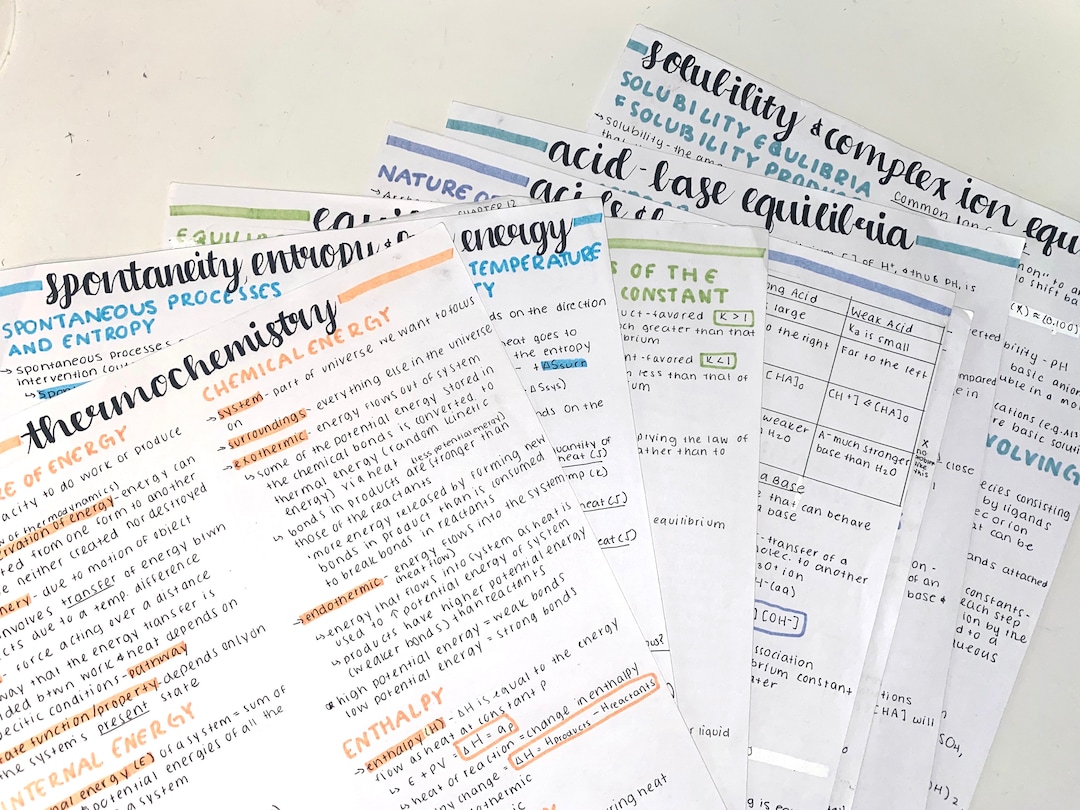 thermochemistry
RE OF ENERGY
acity to do work or produce
w of thermodynamics)
ervation of energy - energy can
ted from one form to another
e neither created nor destroyed
- due to motion of object
involves transfer of energy btwn
cts due to a temp. difference
- force acting over a distance
way that the energy transfer is
ded btwn work & heat depends on
ecific conditions - pathway
ate function/property - depends only on
the system's present state
INTERNAL ENERGY
nal energy (E) of a system = sum of
potential energies of all the
a system
CHEMICAL ENERGY
→ system - part of universe we want to focus
on
→ surroundings - everything else in the universe
→ exothermic - energy flows out of system
↳ some of the potential energy stored in
the chemical bonds is converted to
thermal energy (random kinetic
energy) via heat
less potential energy)
↳ bonds in products are stronger than
those of the reactants
• more energy released by forming new
bonds in product than is consumed
to break bonds in reactants
→ endothermic - energy flows into the system
(heat flow)
↳ energy that flows into system as heat is
used to ↑ potential energy of system
↳ products have higher potential energy
(weaker bonds) than reactants
* high potential energy = weak bonds
low potential energy = strong bonds
ENTHALPY
→ enthalpy (H) - ΔH is equal to the energy
flow as heat at constant P
↳ E + PV = ΔH = qp
↳ heat of reaction = change in enthalpy
py change = ΔH = Hproducts - Hreactants
othermic
uring heat
spontaneity, entropy, &
energy
SPONTANEOUS PROCESSES
AND ENTROPY
→ spontaneous processes
intervention
TEMPERATURE
TY
ds on the direction
heat goes to
the entropy
+ ΔSsurr
ΔSsys)
nds on the
quantity of
heat (J)
mp (K)
heat (J)
heat (J)
CHAPTER 12
EQUILIB
S OF THE
CONSTANT
uct-favored K > 1
ch greater than that
brium
nt-favored K < 1
less than that of
brium
plying the law of
ather than to
equilibrium
r liquid
NATURE OF
acids &
ong Acid
Weak Acid
large
Ka is small
o the right
Far to the left
[CHA]₀
[CH⁺] ≪ [CHA]₀
weaker
H₂O
A⁻ much stronger
base than H₂O
a Base
e that can behave
a base
- transfer of a
molec. to another
H₃O⁺ ion
H⁻(aq)
] [OH⁻]
ssociation
brium constant
ater
acid-base equilibria
] of H⁺, & thus pH, is
close
on -
of an
base &
tions
[HA] will
solubility & complex ion equ
SOLUBILITY EQULIBRIA
& SOLUBILITY PRODU
→ solubility - the am
Common Ion
mon" to an
to shift ba
(x) = (0.100)
bility - pH
basic anion
uble in a mo
re basic solut
VOLVING
ecies consisting
by ligands
ec or ion
at can be
ands attached
constants -
each step
ion by the
d to a
ueous
SO₄